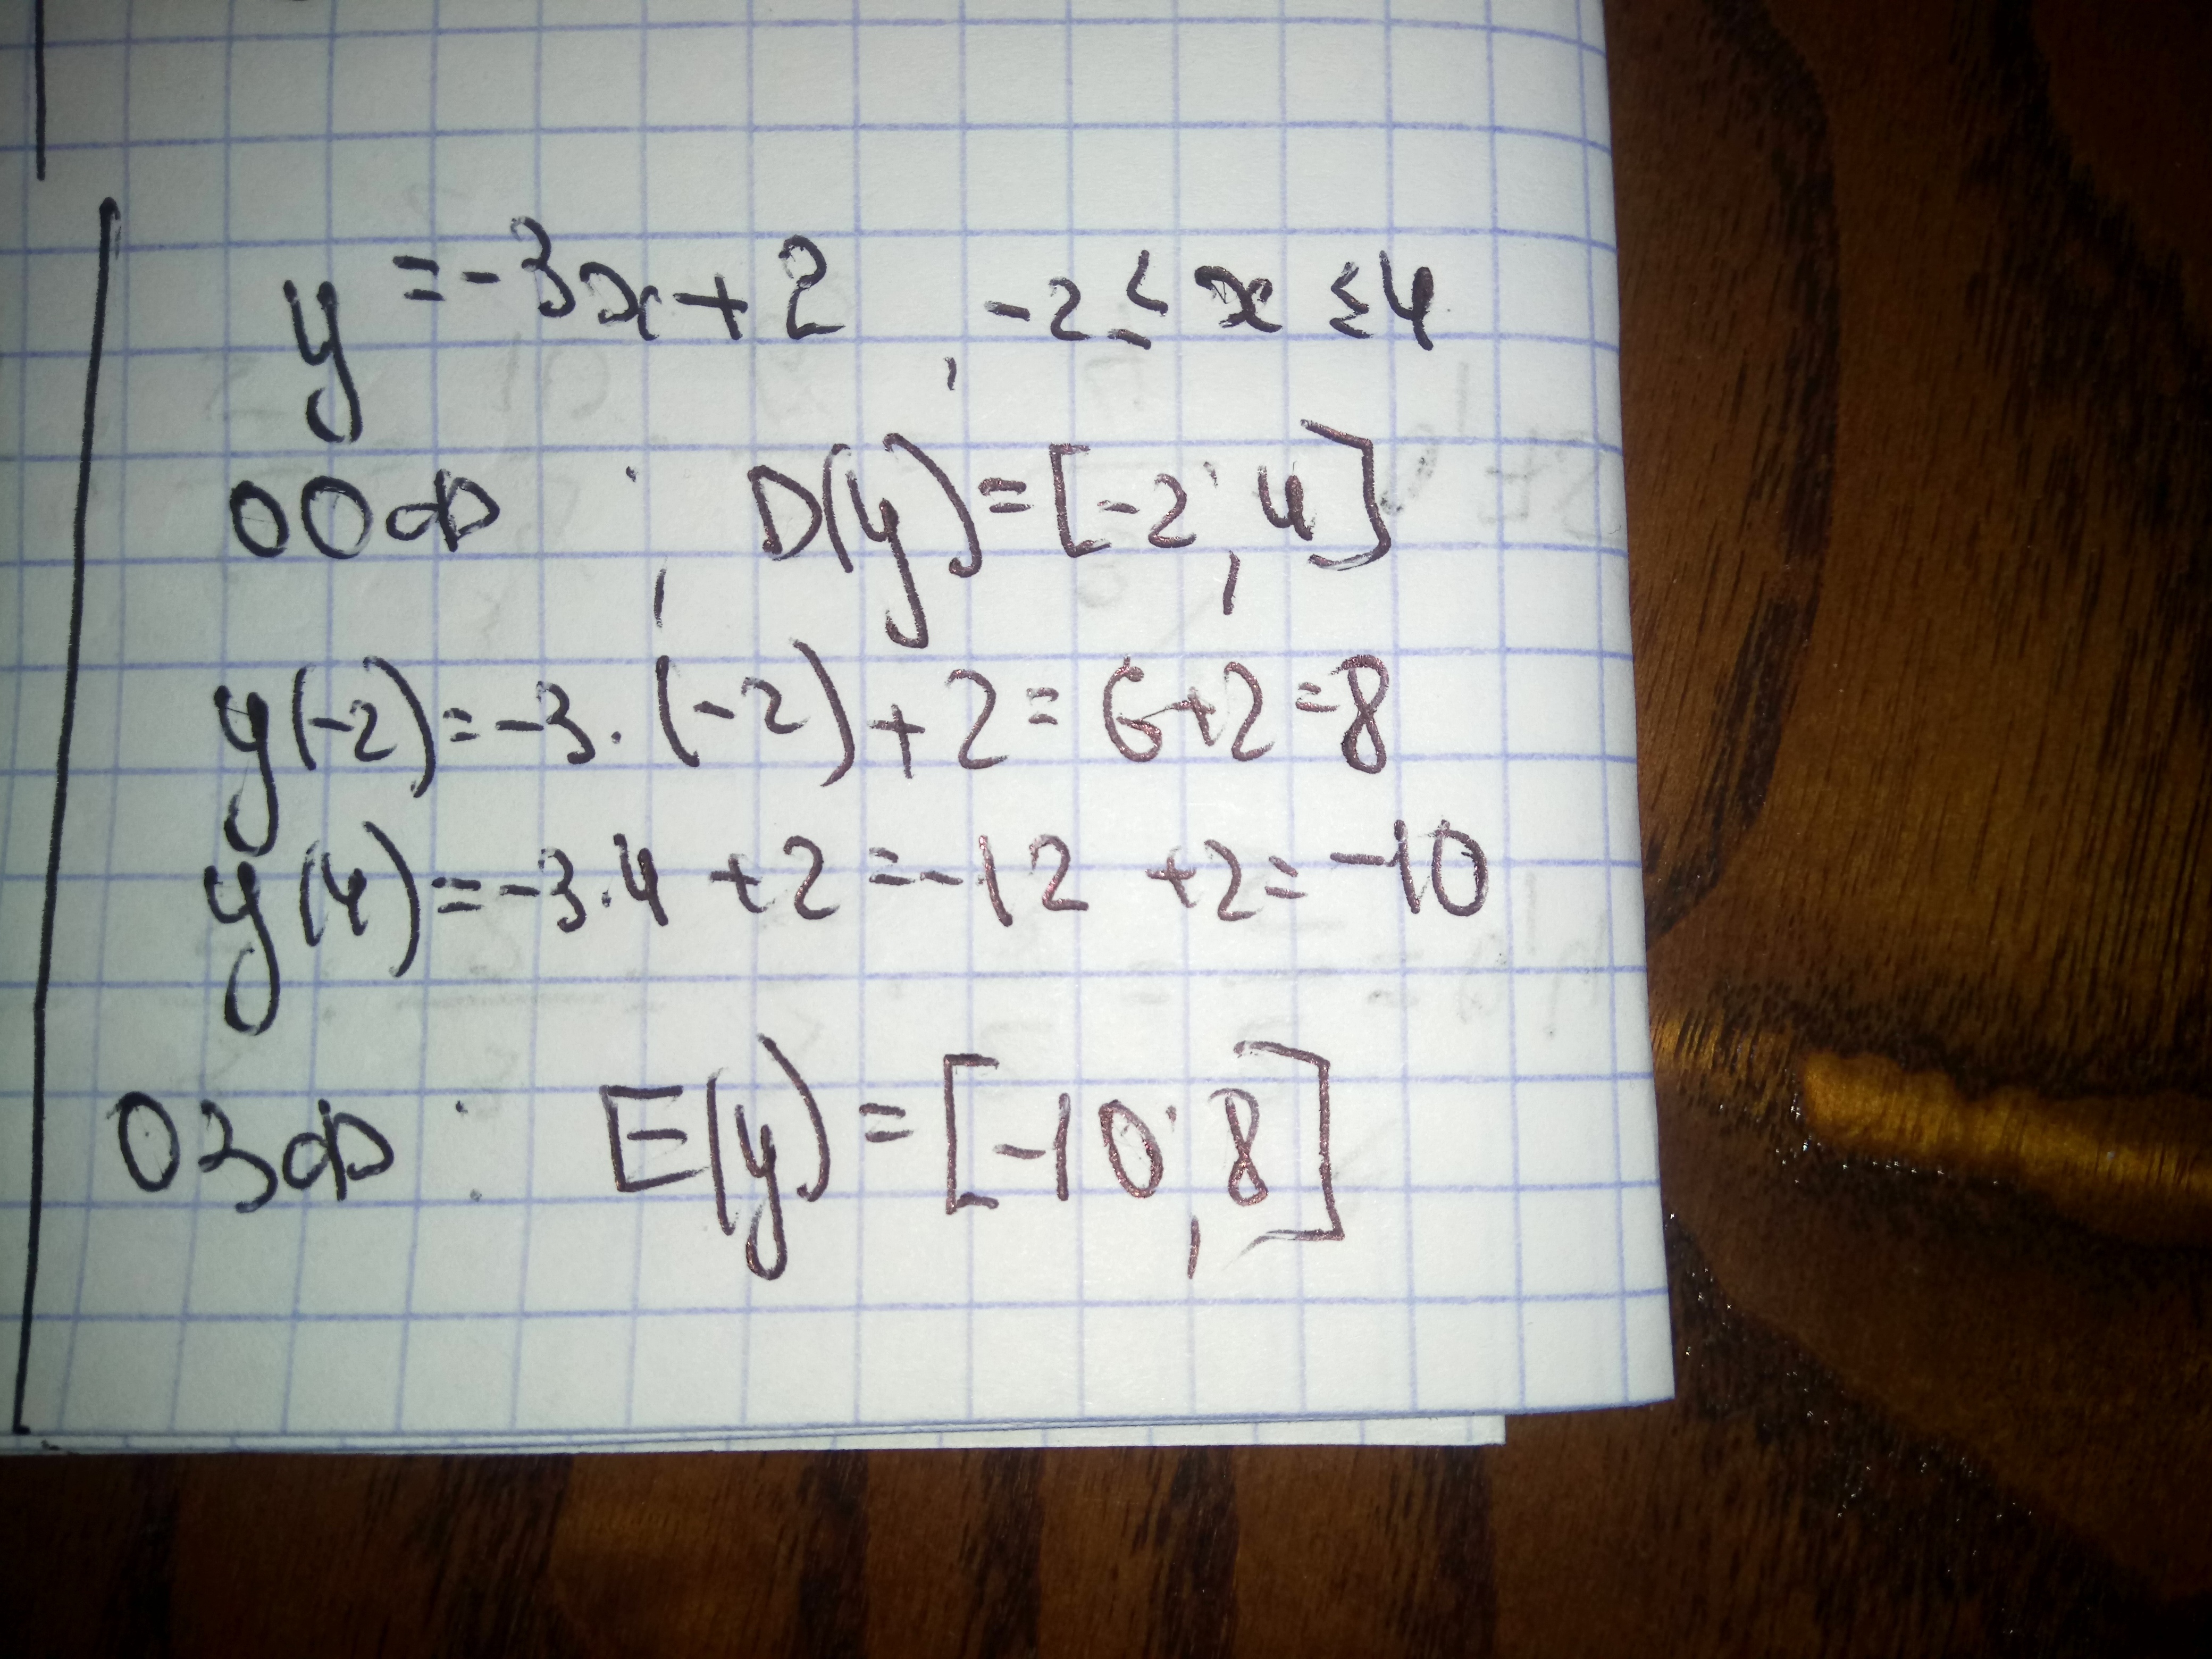 y = -3x + 2, -2 ≤ x ≤ 4
ООФ; D(y) = [-2; 4]
y(-2) = -3·(-2) + 2 = 6+2 = 8
y(4) = -3·4 + 2 = -12 + 2 = -10
ОЗФ: E(y) = [-10; 8]